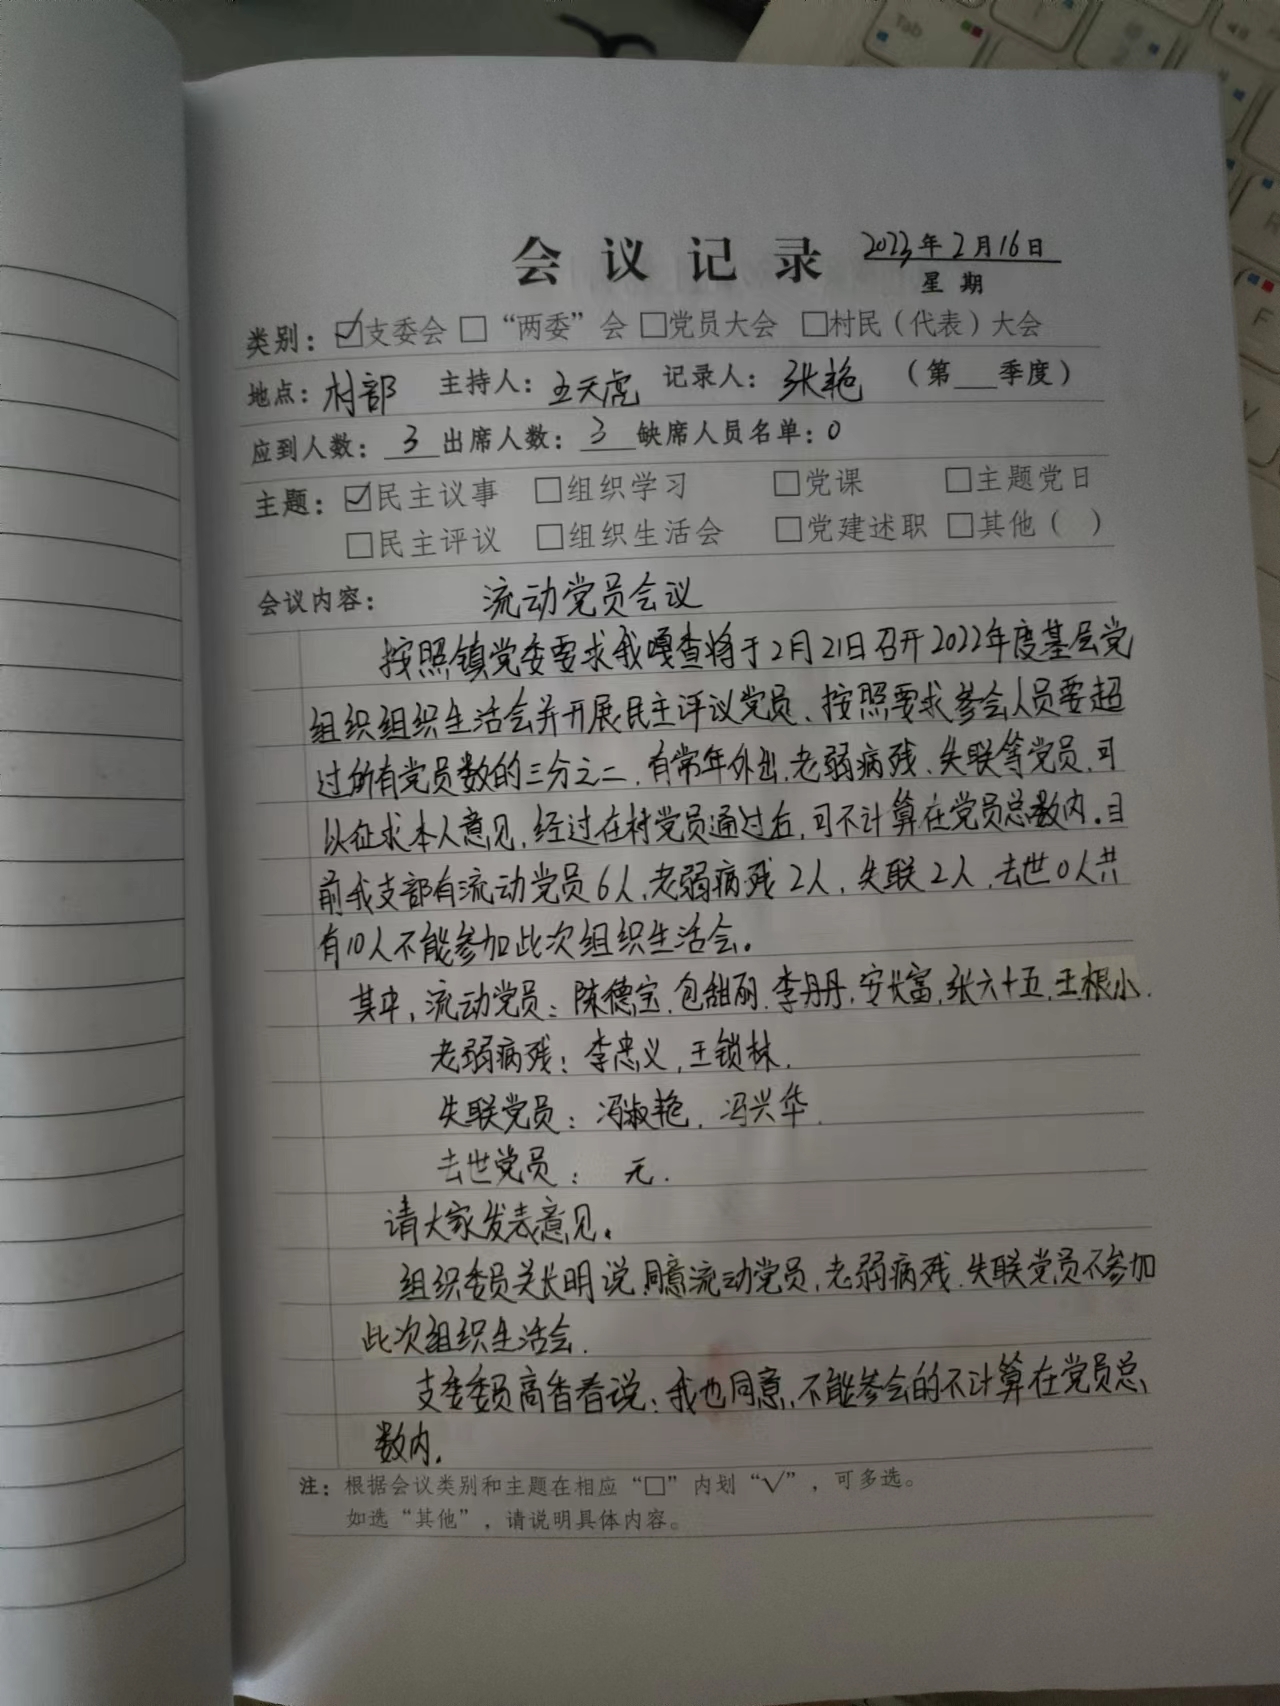 会议记录 2023年2月16日
星期
类别：☑支委会 □“两委”会 □党员大会 □村民（代表）大会
地点：村部 主持人：王天虎 记录人：张艳 （第 季度）
应到人数：3 出席人数：3 缺席人员名单：0
主题：☑民主议事 □组织学习 □党课 □主题党日
□民主评议 □组织生活会 □党建述职 □其他（ ）
会议内容： 流动党员会议
按照镇党委要求我嘎查将于2月21日召开2022年度基层党
组织组织生活会并开展民主评议党员、按照要求参会人员要超
过所有党员数的三分之二，有常年外出、老弱病残、失联等党员，可
以征求本人意见，经过在村党员通过后，可不计算在党员总数内。目
前我支部有流动党员6人，老弱病残2人，失联2人，去世0人共
有10人不能参加此次组织生活会。
其中，流动党员：陈德宝，包甜丽，李丹丹，安长富，张六十五，王根小．
老弱病残：李忠义，王锁林．
失联党员：冯淑艳，冯兴华．
去世党员：无．
请大家发表意见。
组织委员关长明说，同意流动党员，老弱病残，失联党员不参加
此次组织生活会．
支委委员高香春说：我也同意，不能参会的不计算在党员总
数内．
注：根据会议类别和主题在相应“□”内划“√”，可多选。
如选“其他”，请说明具体内容。
Tab
F